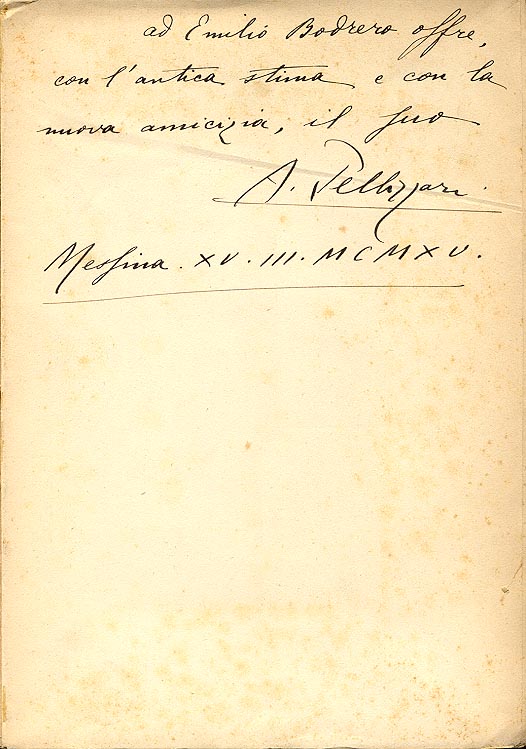 ad Emilio Bodrero offre,
con l'antica stima e con la
nuova amicizia, il suo
A. Pellizzari.
Messina. XV. III. MCMXV.